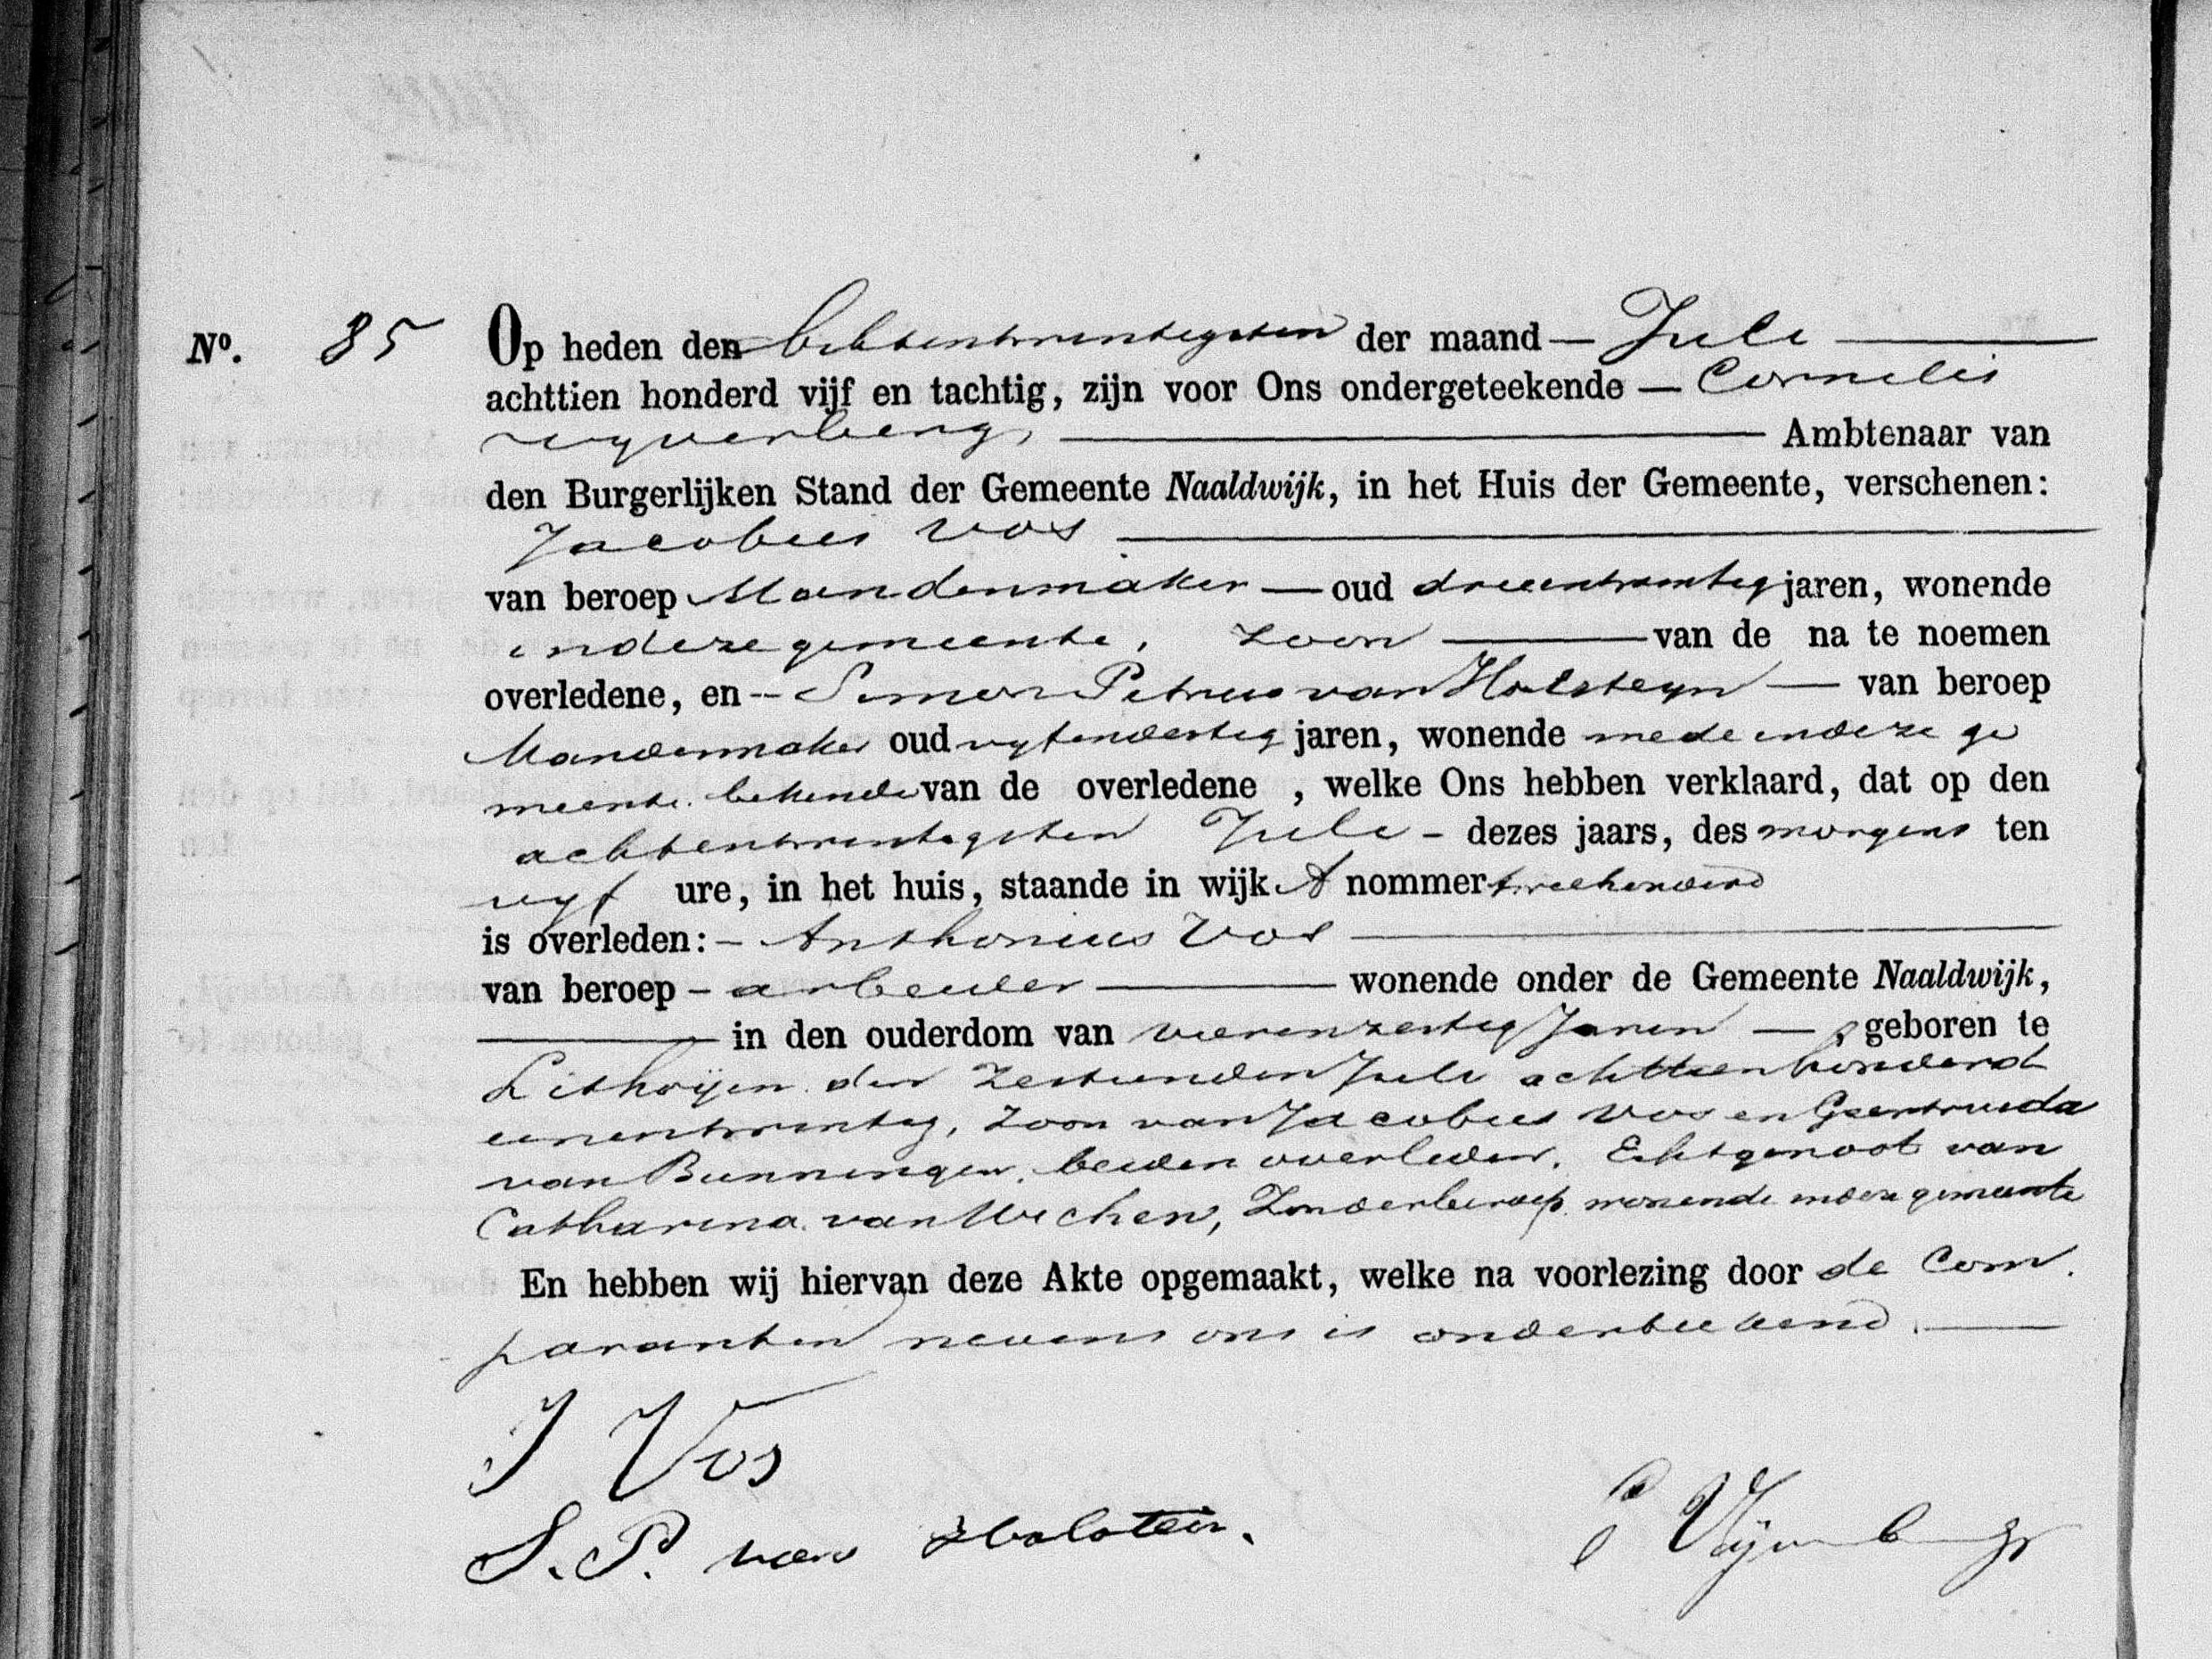 No. 85 Op heden den achtentwintigsten der maand — Juli —
achttien honderd vijf en tachtig, zijn voor Ons ondergeteekende — Cornelis
vyverberg, — Ambtenaar van
den Burgerlijken Stand der Gemeente Naaldwijk, in het Huis der Gemeente, verschenen:
Jacobus Vos —
van beroep Mandenmaker — oud drieentwintig jaren, wonende
in deze gemeente, zoon — van de na te noemen
overledene, en - Simon Petrus van Holsteyn — van beroep
Mandenmaker oud vyfendertig jaren, wonende mede in deze ge
meente. bekende van de overledene , welke Ons hebben verklaard, dat op den
achtentwintigsten Juli - dezes jaars, des morgens ten
vyf ure, in het huis, staande in wijk A nommer tweehonderd
is overleden: - Anthonius Vos —
van beroep - arbeider — wonende onder de Gemeente Naaldwijk,
— in den ouderdom van vierenzestig Jaren — , geboren te
Lithoijen den zestienden Juli achttienhonderd
eenentwintig, zoon van Jacobus Vos en Geertruida
van Bunningen, beiden overleden. Echtgenoot van
Catharina van Wichen, Zonder beroep wonende in deze gemeente
En hebben wij hiervan deze Akte opgemaakt, welke na voorlezing door de Com.
paranten nevens ons is onderteekend. —
J Vos
S. P. van Holstein.
C Vijverberg